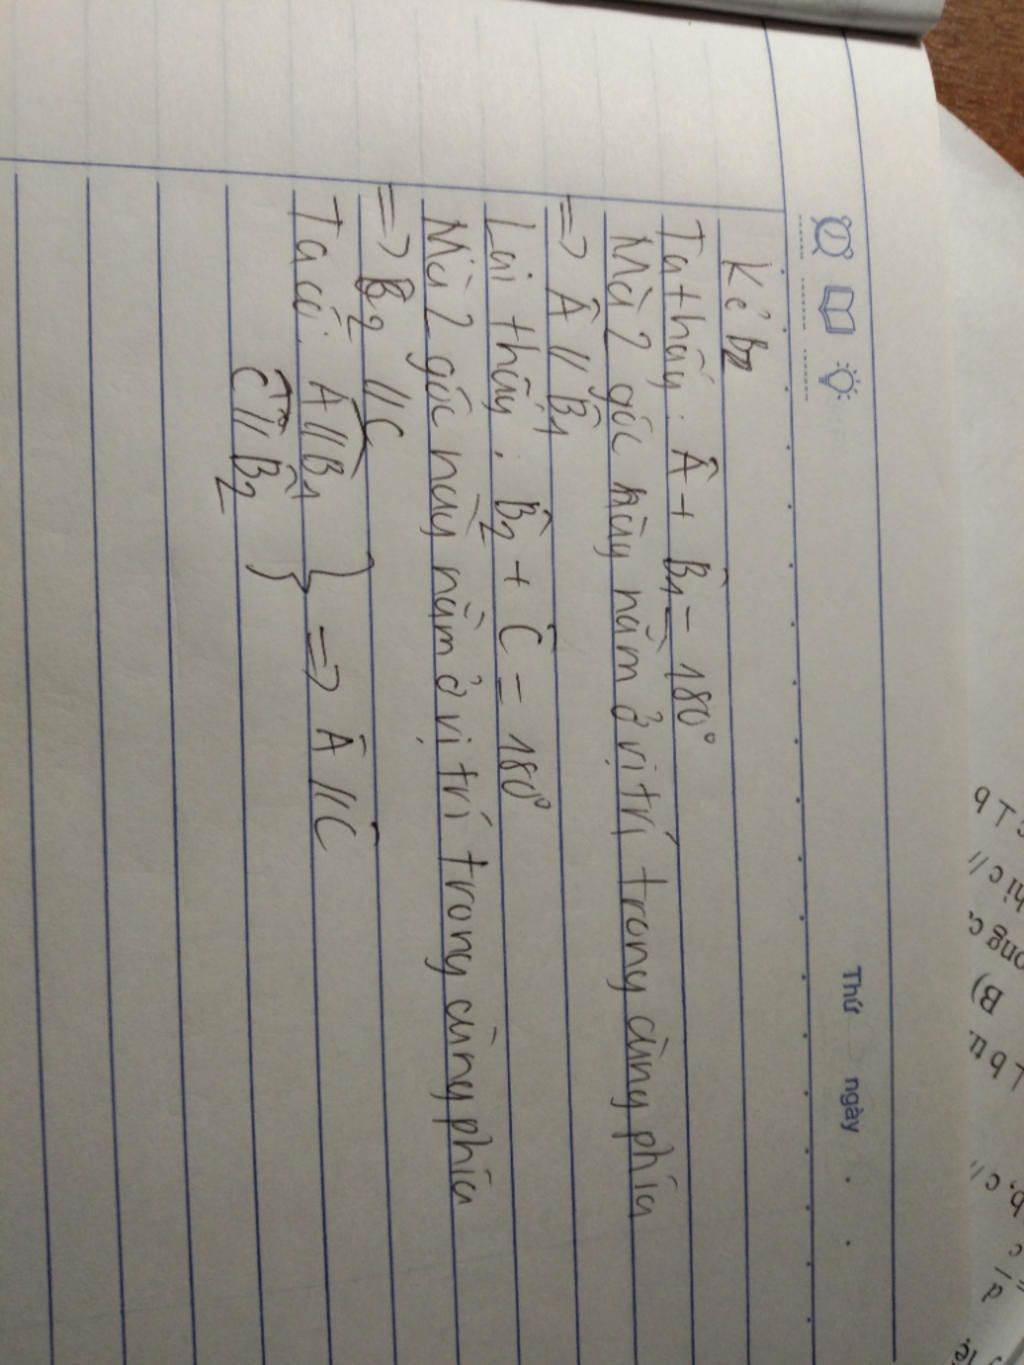 Thứ ngày . .
Kẻ Bz
Ta thấy: Â + B̂₁ = 180°
Mà 2 góc này nằm ở vị trí trong cùng phía
=> Â // B̂₁
Lại thấy: B̂₂ + Ĉ = 180°
Mà 2 góc này nằm ở vị trí trong cùng phía
=> B̂₂ // Ĉ
Ta có: Â // B̂₁ } => Â // Ĉ
Ĉ // B̂₂
c ⊥ b
hì c //
ong c,
B)
⊥ b tt.
b, c //
= d
c